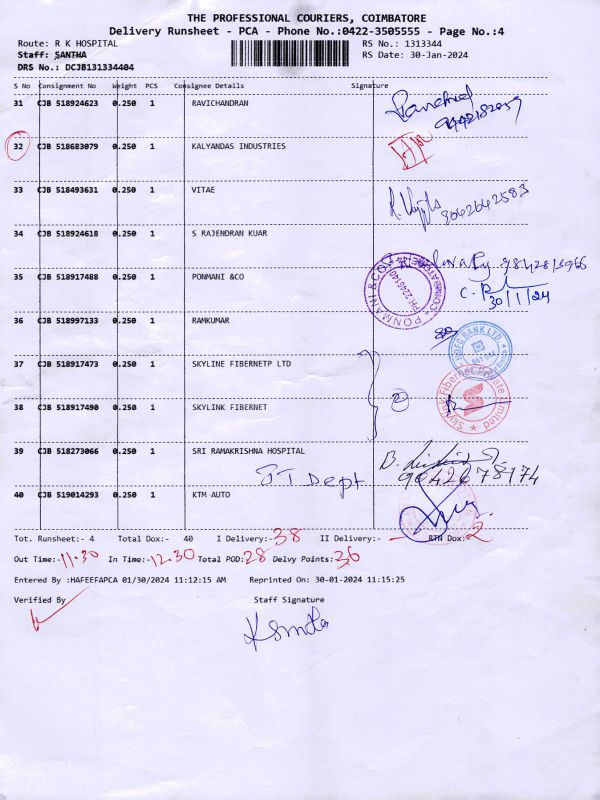 THE PROFESSIONAL COURIERS, COIMBATORE
Delivery Runsheet - PCA - Phone No.:0422-3505555 - Page No.:4
Route: R K HOSPITAL RS No.: 1313344
Staff: SANTHA RS Date: 30-Jan-2024
DRS No.: DCJB131334404
S No Consignment No Weight PCS Consignee Details Signature
31 CJB 518924623 0.250 1 RAVICHANDRAN
32 CJB 518683079 0.250 1 KALYANDAS INDUSTRIES
33 CJB 518493631 0.250 1 VITAE 9042642583
34 CJB 518924618 0.250 1 S RAJENDRAN KUAR
35 CJB 518917488 0.250 1 PONMANI &CO PONMANI & CO 30/1/24
36 CJB 518997133 0.250 1 RAMKUMAR
HDFC BANK LTD
37 CJB 518917473 0.250 1 SKYLINE FIBERNETP LTD
38 CJB 518917490 0.250 1 SKYLINK FIBERNET 2 Skylink Fibernet Private Limited
39 CJB 518273066 0.250 1 SRI RAMAKRISHNA HOSPITAL
IT Dept
40 CJB 519014293 0.250 1 KTM AUTO
Tot. Runsheet:- 4 Total Dox:- 40 I Delivery:- 38 II Delivery:- RTN Dox:- 2
Out Time:- 11.30 In Time:- 12.30 Total POD: 28 Delvy Points: 36
Entered By :HAFEEFAPCA 01/30/2024 11:12:15 AM Reprinted On: 30-01-2024 11:15:25
Verified By Staff Signature